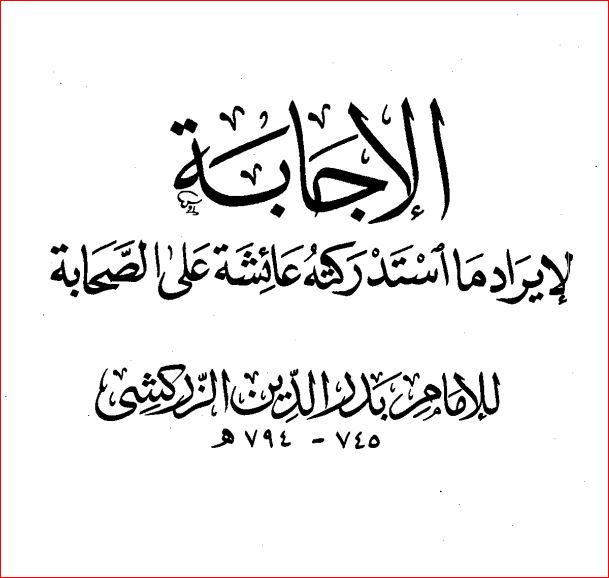 الإجَابَة
لإيرَاد مَا ٱسْتَدْرَكَتهُ عَائِشَة عَلى الصَّحَابة
للإمَامِ بَدر الدِّين الزّركشِى
٧٤٥ - ٧٩٤ هـ